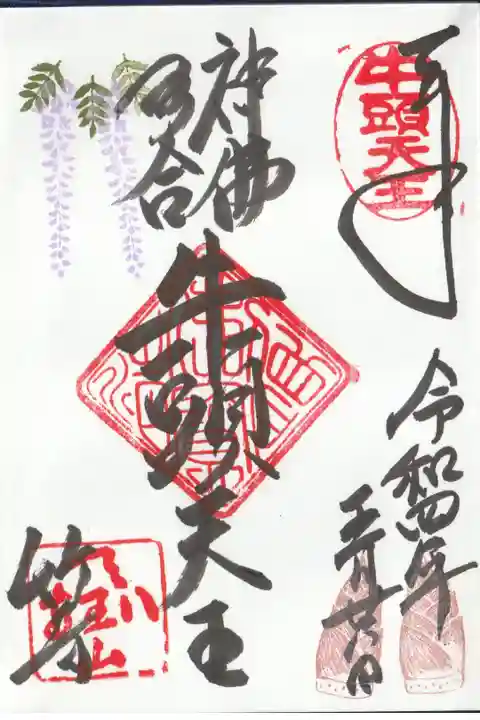 奉拝
牛頭天王
令和四年
五月廿日
神佛
習合
牛頭天王
竹寺